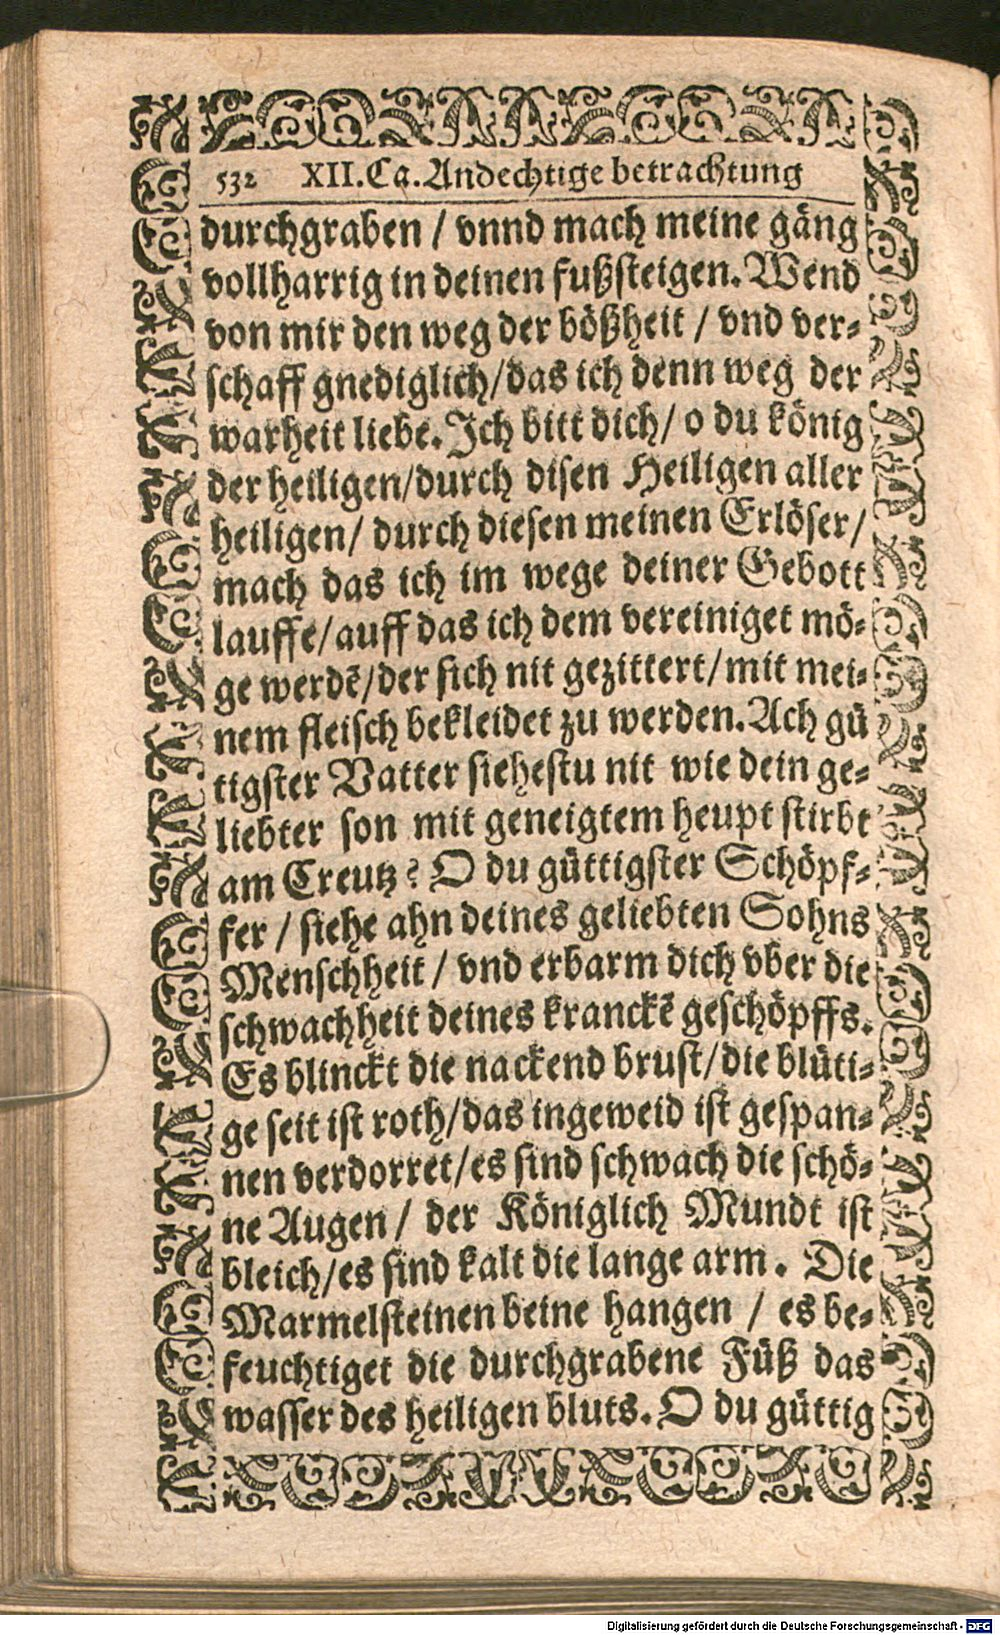 532 XII. Ca. Andechtige betrachtung
durchgraben / vnnd mach meine gäng
vollharrig in deinen fußsteigen. Wend
von mir den weg der bößheit / vnd ver-
schaff gnediglich/das ich denn weg der
warheit liebe. Ich bitt dich/ o du könig
der heiligen/durch disen Heiligen aller
heiligen/ durch diesen meinen Erlöser/
mach das ich im wege deiner Gebott
lauffe/auff das ich dem vereiniget mö-
ge werdē/der sich nit gezittert/mit mei-
nem fleisch bekleidet zu werden. Ach gü
tigster Vatter siehestu nit wie dein ge-
liebter son mit geneigtem heupt stirbt
am Creutz? O du güttigster Schöpf-
fer / siehe ahn deines geliebten Sohns
Menschheit / vnd erbarm dich vber die
schwachheit deines kranckē geschöpffs.
Es blinckt die nackend brust/die blüti-
ge seit ist roth/das ingeweid ist gespan-
nen verdorret/es sind schwach die schö-
ne Augen / der Königlich Mundt ist
bleich/es sind kalt die lange arm. Die
Marmelsteinen beine hangen / es be-
feuchtiget die durchgrabene Füß das
wasser des heiligen bluts. O du güttig
Digitalisierung gefördert durch die Deutsche Forschungsgemeinschaft - DFG